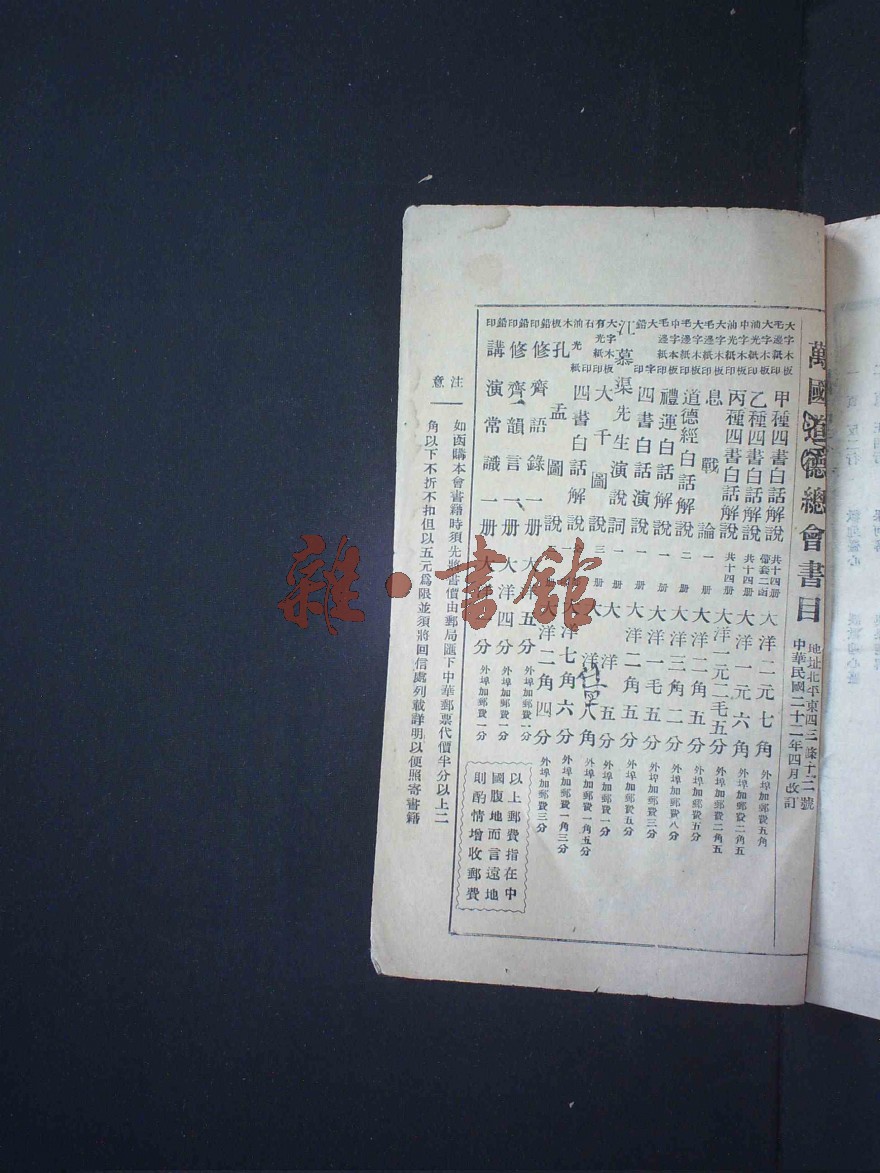 萬國道德總會書目
地址北平東四三條十二號
中華民國二十二年四月改訂
大字木板毛邊紙印 甲種四書白話解說 共十四册帶套二函 大洋二元七角 外埠加郵費五角
大字木板油光紙印 乙種四書白話解說 共十四册 大洋一元六角 外埠加郵費二角五
中字木板油光紙印 丙種四書白話解說 共十四册 大洋一元二毛五分 外埠加郵費二角五
大字木板毛邊紙印 息戰論 一册 大洋二角五分 外埠加郵費五分
大字木板毛邊紙印 道德經白話解說 二册 大洋三角二分 外埠加郵費八分
中字木板毛邊紙印 禮運白話解說 一册 大洋一毛五分 外埠加郵費三分
大字鉛印 四書白話演說 一册 大洋二角五分 外埠加郵費五分
江慕渠先生演說詞 一册 大洋五分 外埠加郵費一分
大字木板有光紙印 大千圖說 三册 大洋八角 外埠加郵費一角五分
石印油光紙 四書白話解說 大洋七角六分 外埠加郵費一角三分
木板 孔孟圖說 大洋二角四分 外埠加郵費三分
鉛印 修齊語錄 一册 大洋五分 外埠加郵費一分
鉛印 修齊韻言 一册 大洋四分 外埠加郵費一分
鉛印 講演常識 一册 大洋 分 外埠加郵費一分
以上郵費指在中
國腹地而言遠地
則酌情增收郵費
注意
如函購本會書籍時須先將書價由郵局匯下中華郵票代價半分以上二
角以下不折不扣但以五元爲限並須將回信處列載詳明以便照寄書籍
雜·書館